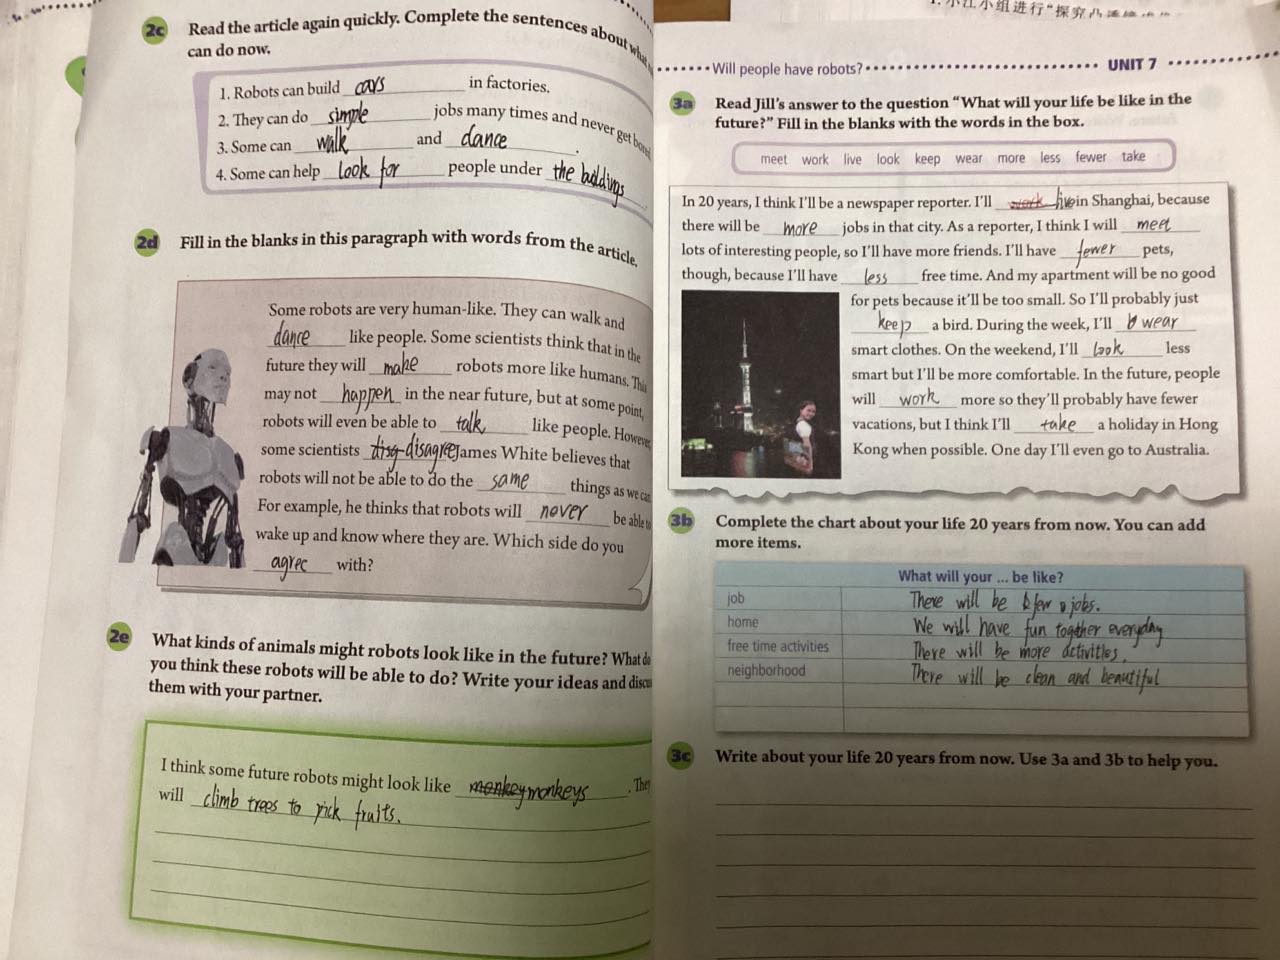 2c Read the article again quickly. Complete the sentences about what
can do now.
1. Robots can build cars in factories.
2. They can do simple jobs many times and never get bored
3. Some can walk and dance.
4. Some can help look for people under the buildings.
2d Fill in the blanks in this paragraph with words from the article.
Some robots are very human-like. They can walk and
dance like people. Some scientists think that in the
future they will make robots more like humans. This
may not happen in the near future, but at some point,
robots will even be able to talk like people. However,
some scientists disagree James White believes that
robots will not be able to do the same things as we can
For example, he thinks that robots will never be able to
wake up and know where they are. Which side do you
agree with?
2e What kinds of animals might robots look like in the future? What do
you think these robots will be able to do? Write your ideas and discu
them with your partner.
I think some future robots might look like monkey monkeys. They
will climb trees to pick fruits.
Will people have robots? UNIT 7
3a Read Jill's answer to the question "What will your life be like in the
future?" Fill in the blanks with the words in the box.
meet work live look keep wear more less fewer take
In 20 years, I think I'll be a newspaper reporter. I'll work live in Shanghai, because
there will be more jobs in that city. As a reporter, I think I will meet
lots of interesting people, so I'll have more friends. I'll have fewer pets,
though, because I'll have less free time. And my apartment will be no good
for pets because it'll be too small. So I'll probably just
keep a bird. During the week, I'll wear
smart clothes. On the weekend, I'll look less
smart but I'll be more comfortable. In the future, people
will work more so they'll probably have fewer
vacations, but I think I'll take a holiday in Hong
Kong when possible. One day I'll even go to Australia.
3b Complete the chart about your life 20 years from now. You can add
more items.
What will your ... be like?
job There will be few jobs.
home We will have fun together everyday
free time activities There will be more activities.
neighborhood There will be clean and beautiful
3c Write about your life 20 years from now. Use 3a and 3b to help you.